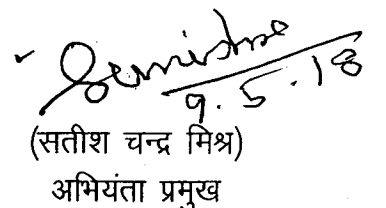 9.5.18
(सतीश चन्द्र मिश्र)
अभियंता प्रमुख